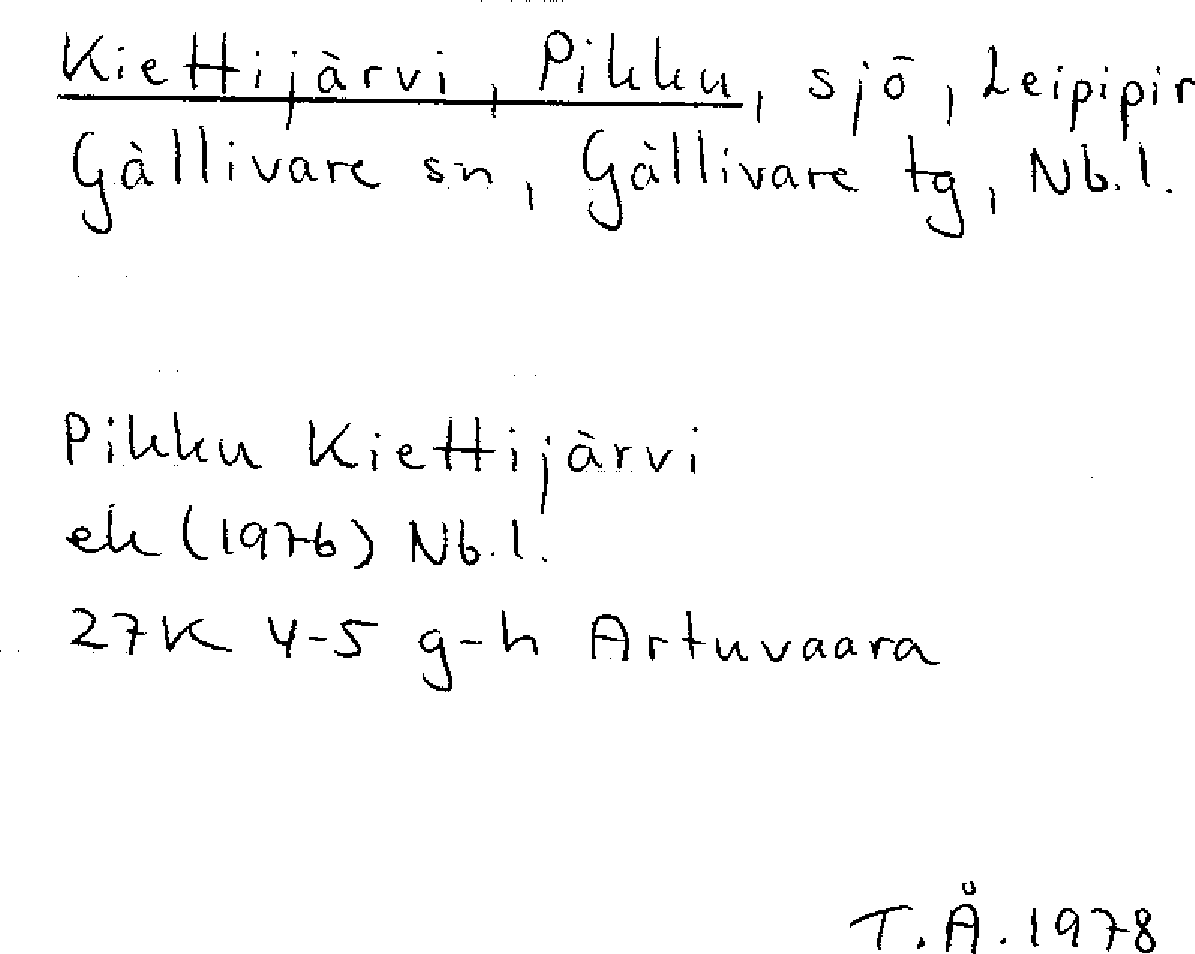 Kiettijärvi, Pikku, sjö, Leipipir
Gällivare sn, Gällivare tg, Nb.l.
Pikku Kiettijärvi
ek (1976) Nb.l.
27K 4-5 g-h Artuvaara
T.Å. 1978